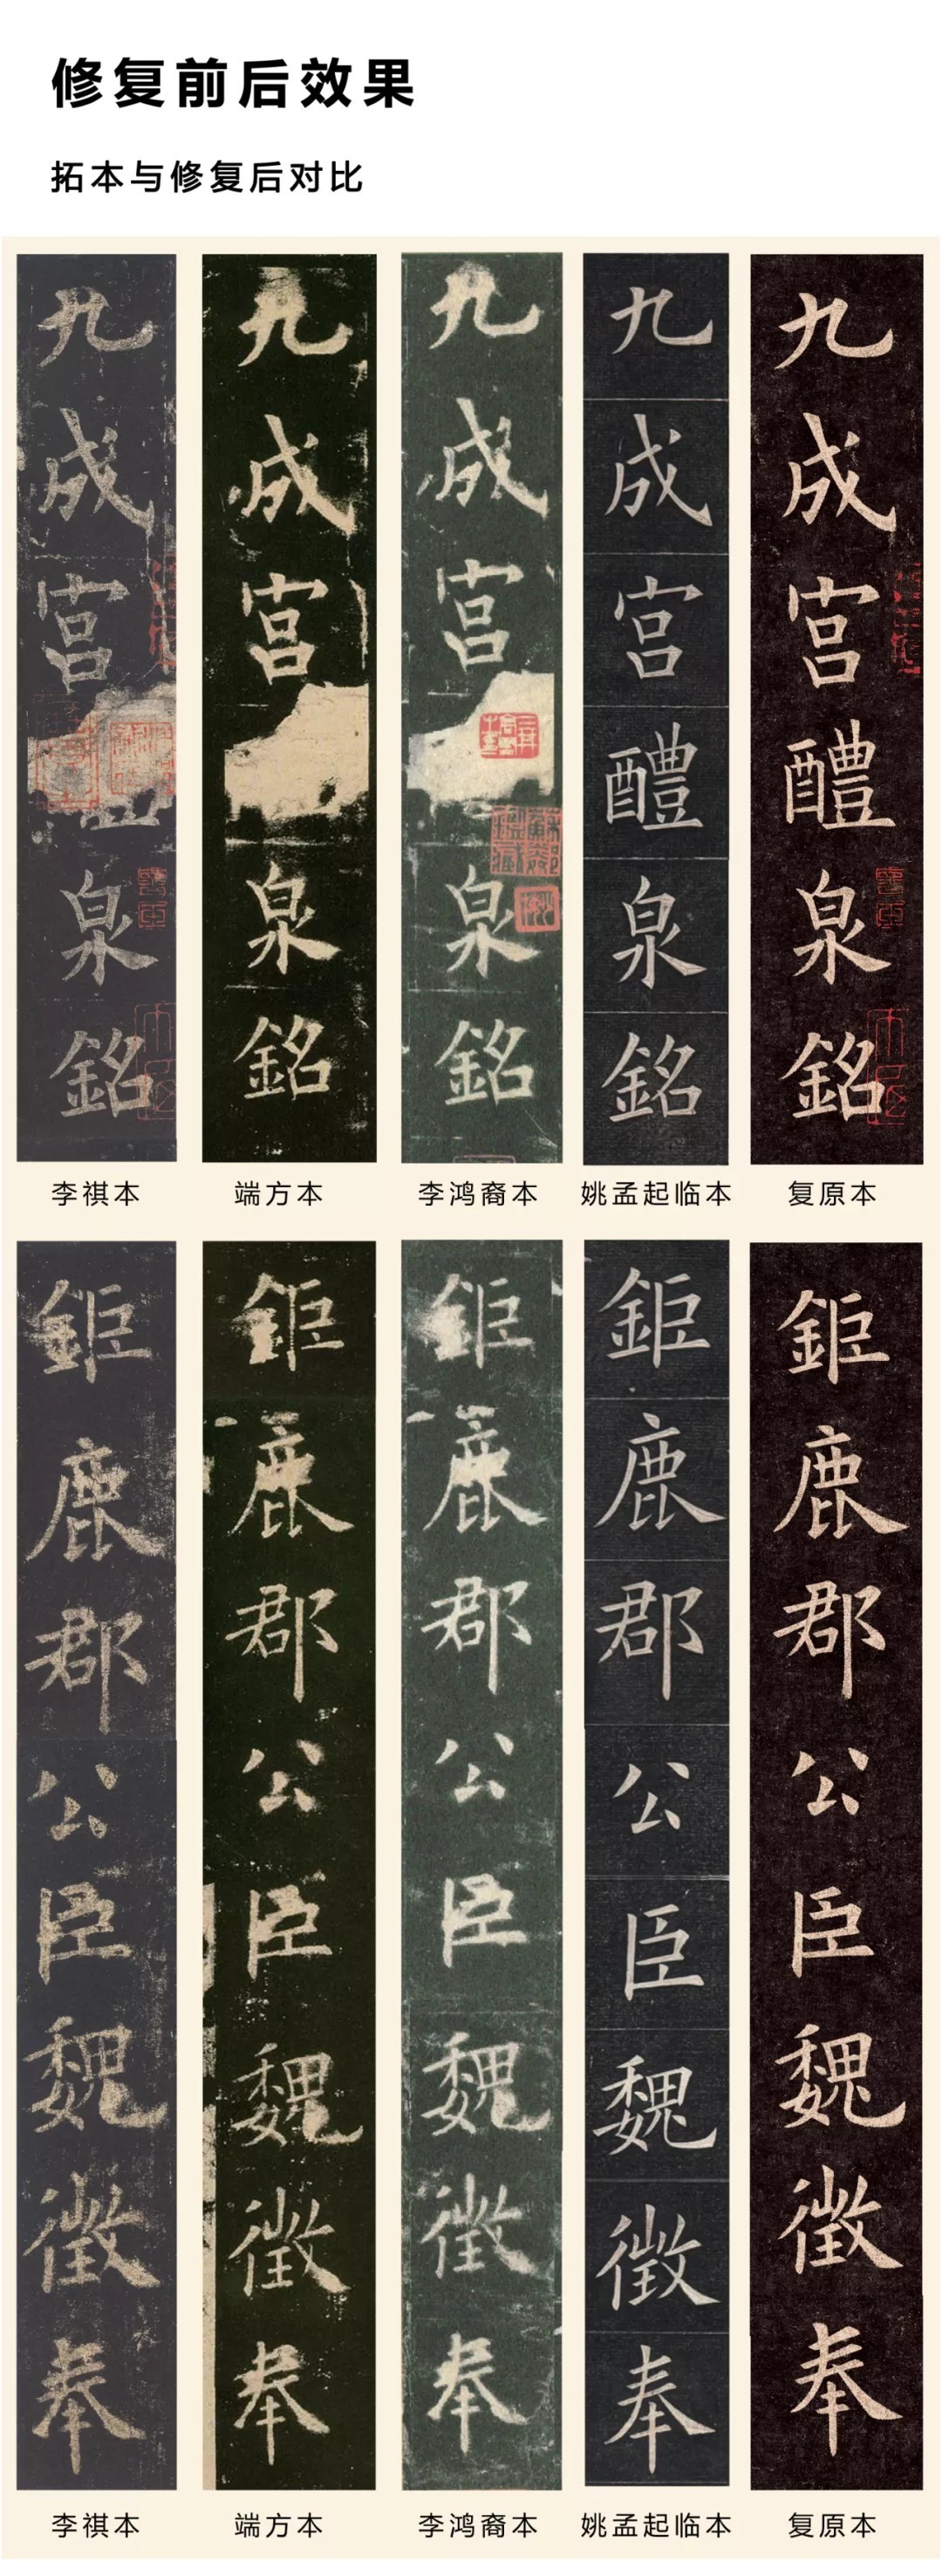 修复前后效果
拓本与修复后对比
九成宫泉銘
九成宫泉銘
九成宫泉銘
九成宫醴泉銘
九成宫醴泉銘
李祺本
端方本
李鸿裔本
姚孟起临本
复原本
鉅鹿郡公臣魏徵奉
鉅鹿郡公臣魏徵奉
鉅鹿郡公臣魏徵奉
鉅鹿郡公臣魏徵奉
鉅鹿郡公臣魏徵奉
李祺本
端方本
李鸿裔本
姚孟起临本
复原本